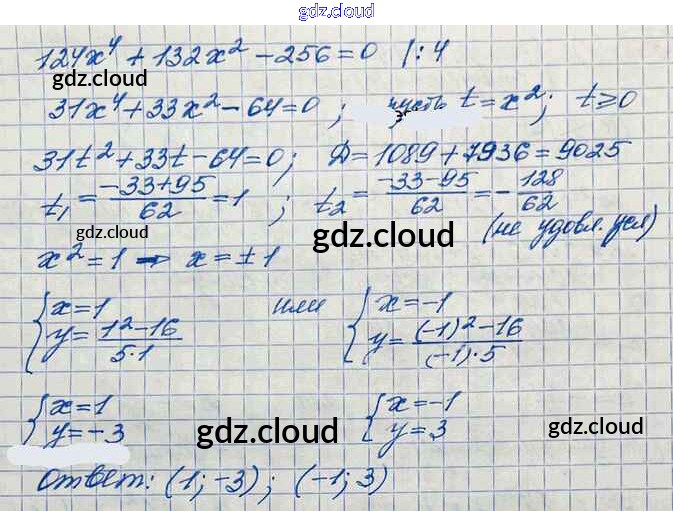 gdz.cloud
124x⁴ + 132x² - 256 = 0 |:4
gdz.cloud
31x⁴ + 33x² - 64 = 0 ; пусть t = x² ; t ≥ 0
31t² + 33t - 64 = 0 ; D = 1089 + 7936 = 9025
t₁ = (-33+95)/62 = 1 ; t₂ = (-33-95)/62 = -128/62
gdz.cloud gdz.cloud (не удовл. усл)
x² = 1 ⇒ x = ±1
{ x = 1 или { x = -1
{ y = (1² - 16)/(5·1) { y = ((-1)² - 16)/((-1)·5)
{ x = 1 { x = -1
{ y = -3 { y = 3
gdz.cloud gdz.cloud gdz.cloud
Ответ: (1; -3) ; (-1; 3)